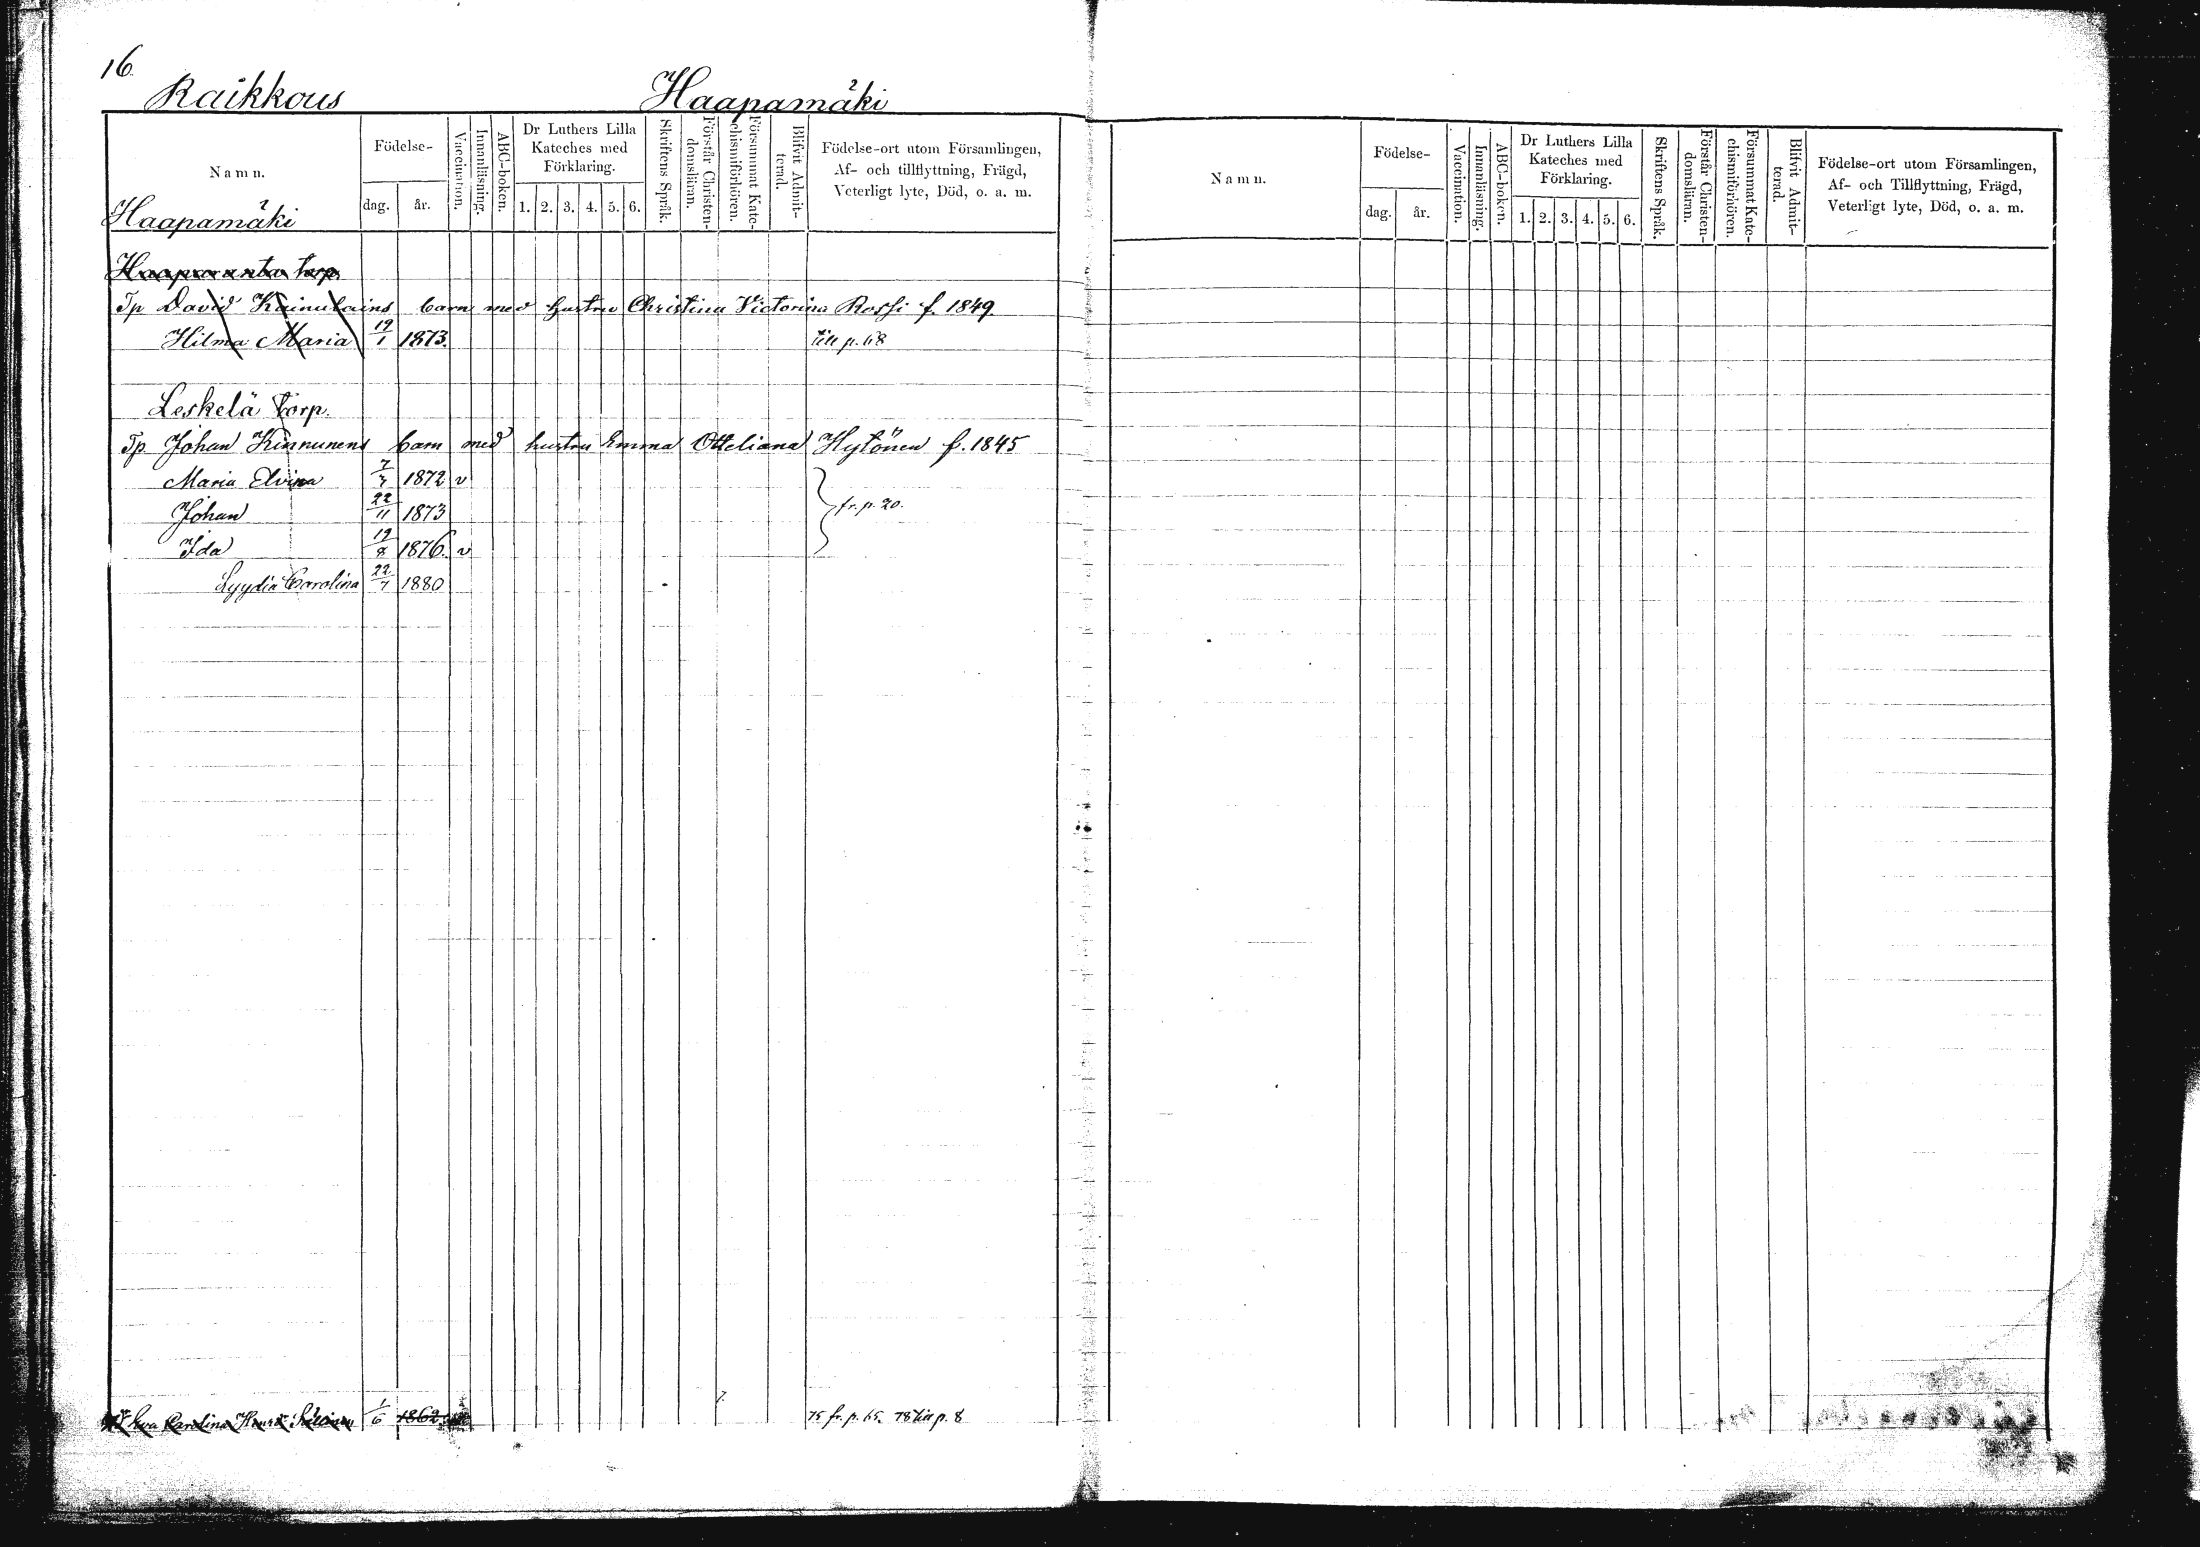 16.
Raikkous Haapamäki
Namn. Födelse- dag. år. Vaccination. Innanläsning. ABC-boken. Dr Luthers Lilla Kateches med Förklaring. 1. 2. 3. 4. 5. 6. Skriftens Språk. Förstår Christen-domsläran. Försummat Kate-chismiförhören. Blifvit Admit-terad. Födelse-ort utom Församlingen, Af- och tillflyttning, Frägd, Veterligt lyte, Död, o. a. m.
Haapamäki
Haaparanta torp.
Tp David Kainulains barn med hustru Christina Victorina Rossi f. 1849
Hilma Maria 19/1 1873. till p. 68
Leskelä torp.
Tp. Johan Kinnunens barn med hustru Emma Otteliana Hytönen f. 1845
Maria Elvina 1872 v
Johan 22/11 1873 fr. p. 20.
Ida 19/8 1876. v
Lyydia Carolina 22/7 1880
Eva Karolina 1/6 1862 75 fr. p. 65. 78 till p. 8
Namn. Födelse- dag. år. Vaccination. Innanläsning. ABC-boken. Dr Luthers Lilla Kateches med Förklaring. 1. 2. 3. 4. 5. 6. Skriftens Språk. Förstår Christen-domsläran. Försummat Kate-chismiförhören. Blifvit Admit-terad. Födelse-ort utom Församlingen, Af- och Tillflyttning, Frägd, Veterligt lyte, Död, o. a. m.